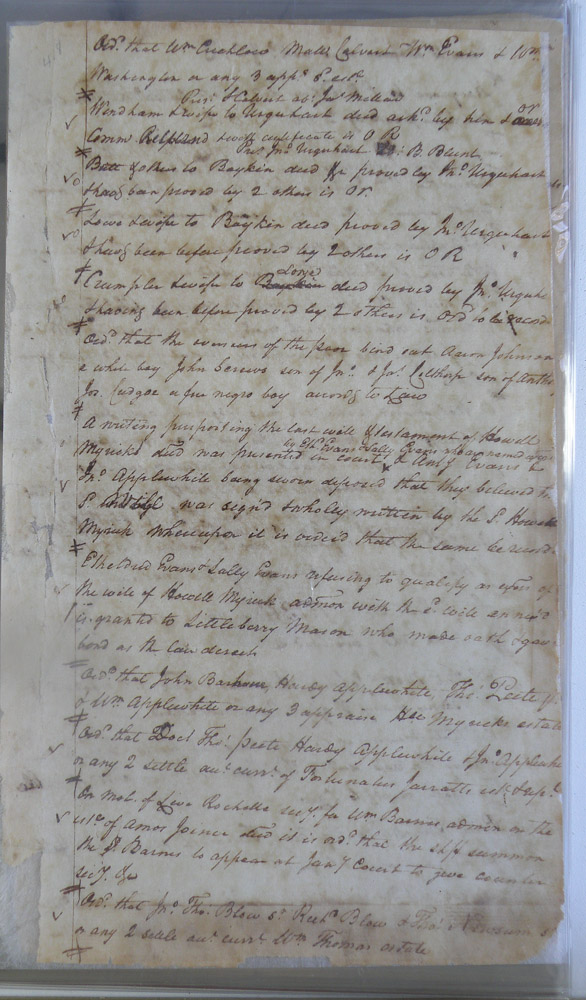 Ord. that Wm Critchlow Matt Calvert Wm Evans & Wm
Washington or any 3 appr. S. est.
Pres. S Calvert as. Jas. Millar
Windham & wife to Urquhart deed ackd. by him & or
Comm Relp'd & wife certificate is O R
Pres. Jno. Urquhart B. Blunt
Batt & others to Boykin deed fr proved by Jno. Urquhart
& havg been proved by 2 others is Or
Lowe & wife to Boykin deed proved by Jno. Urquhart
& havg been before proved by 2 others is O R
Crumpler & wife to Boykin deed proved by Jno. Urquh
& having been before proved by 2 others is Ord to be record
Ord. that the overseers of the poor bind out Aaron Johnson
a white boy John Screws son of Jn. & son of
Jos. Cudgoe a free negro boy accordg to Law
A writing purporting the last will & testament of Howell
by Ethd. Evans & Sally Evans exors named
Myrick decd was presented in court & Evans &
Jno. Applewhite being sworn deposed that they believed the
S. was sign'd & wholey written by the S. Howell
Myrick Whereupon it is ordered that the same be record
Etheldred Evans & Sally Evans refusing to qualify as exors of
the will of Howell Myrick admon with the S. will annexd
is granted to Littleberry Mason who made oath & gave
bond as the law directs
Ord. that John Barham Hardy Applewhite Tho. Peete
& Wm Applewhite or any 3 appraise How Myricks estate
Ord. that Doct Tho. Peete Hardy Applewhite & Jno. Applewhite
or any 2 settle acc. curr. of Fortunatus Jarratts est. & rept.
On mot. of Levi Rochelle secy. for Wm Barnes admon on the
est. of Amos Joiner decd it is ord. that the shff summon
the S. Barnes to appear at Jany Court to give counter
secy. &c
Ord. that Jno. Tho. Blow Sr. Richd. Blow & Tho. Newsum
or any 2 settle acc. curr. Wm Thomas estate